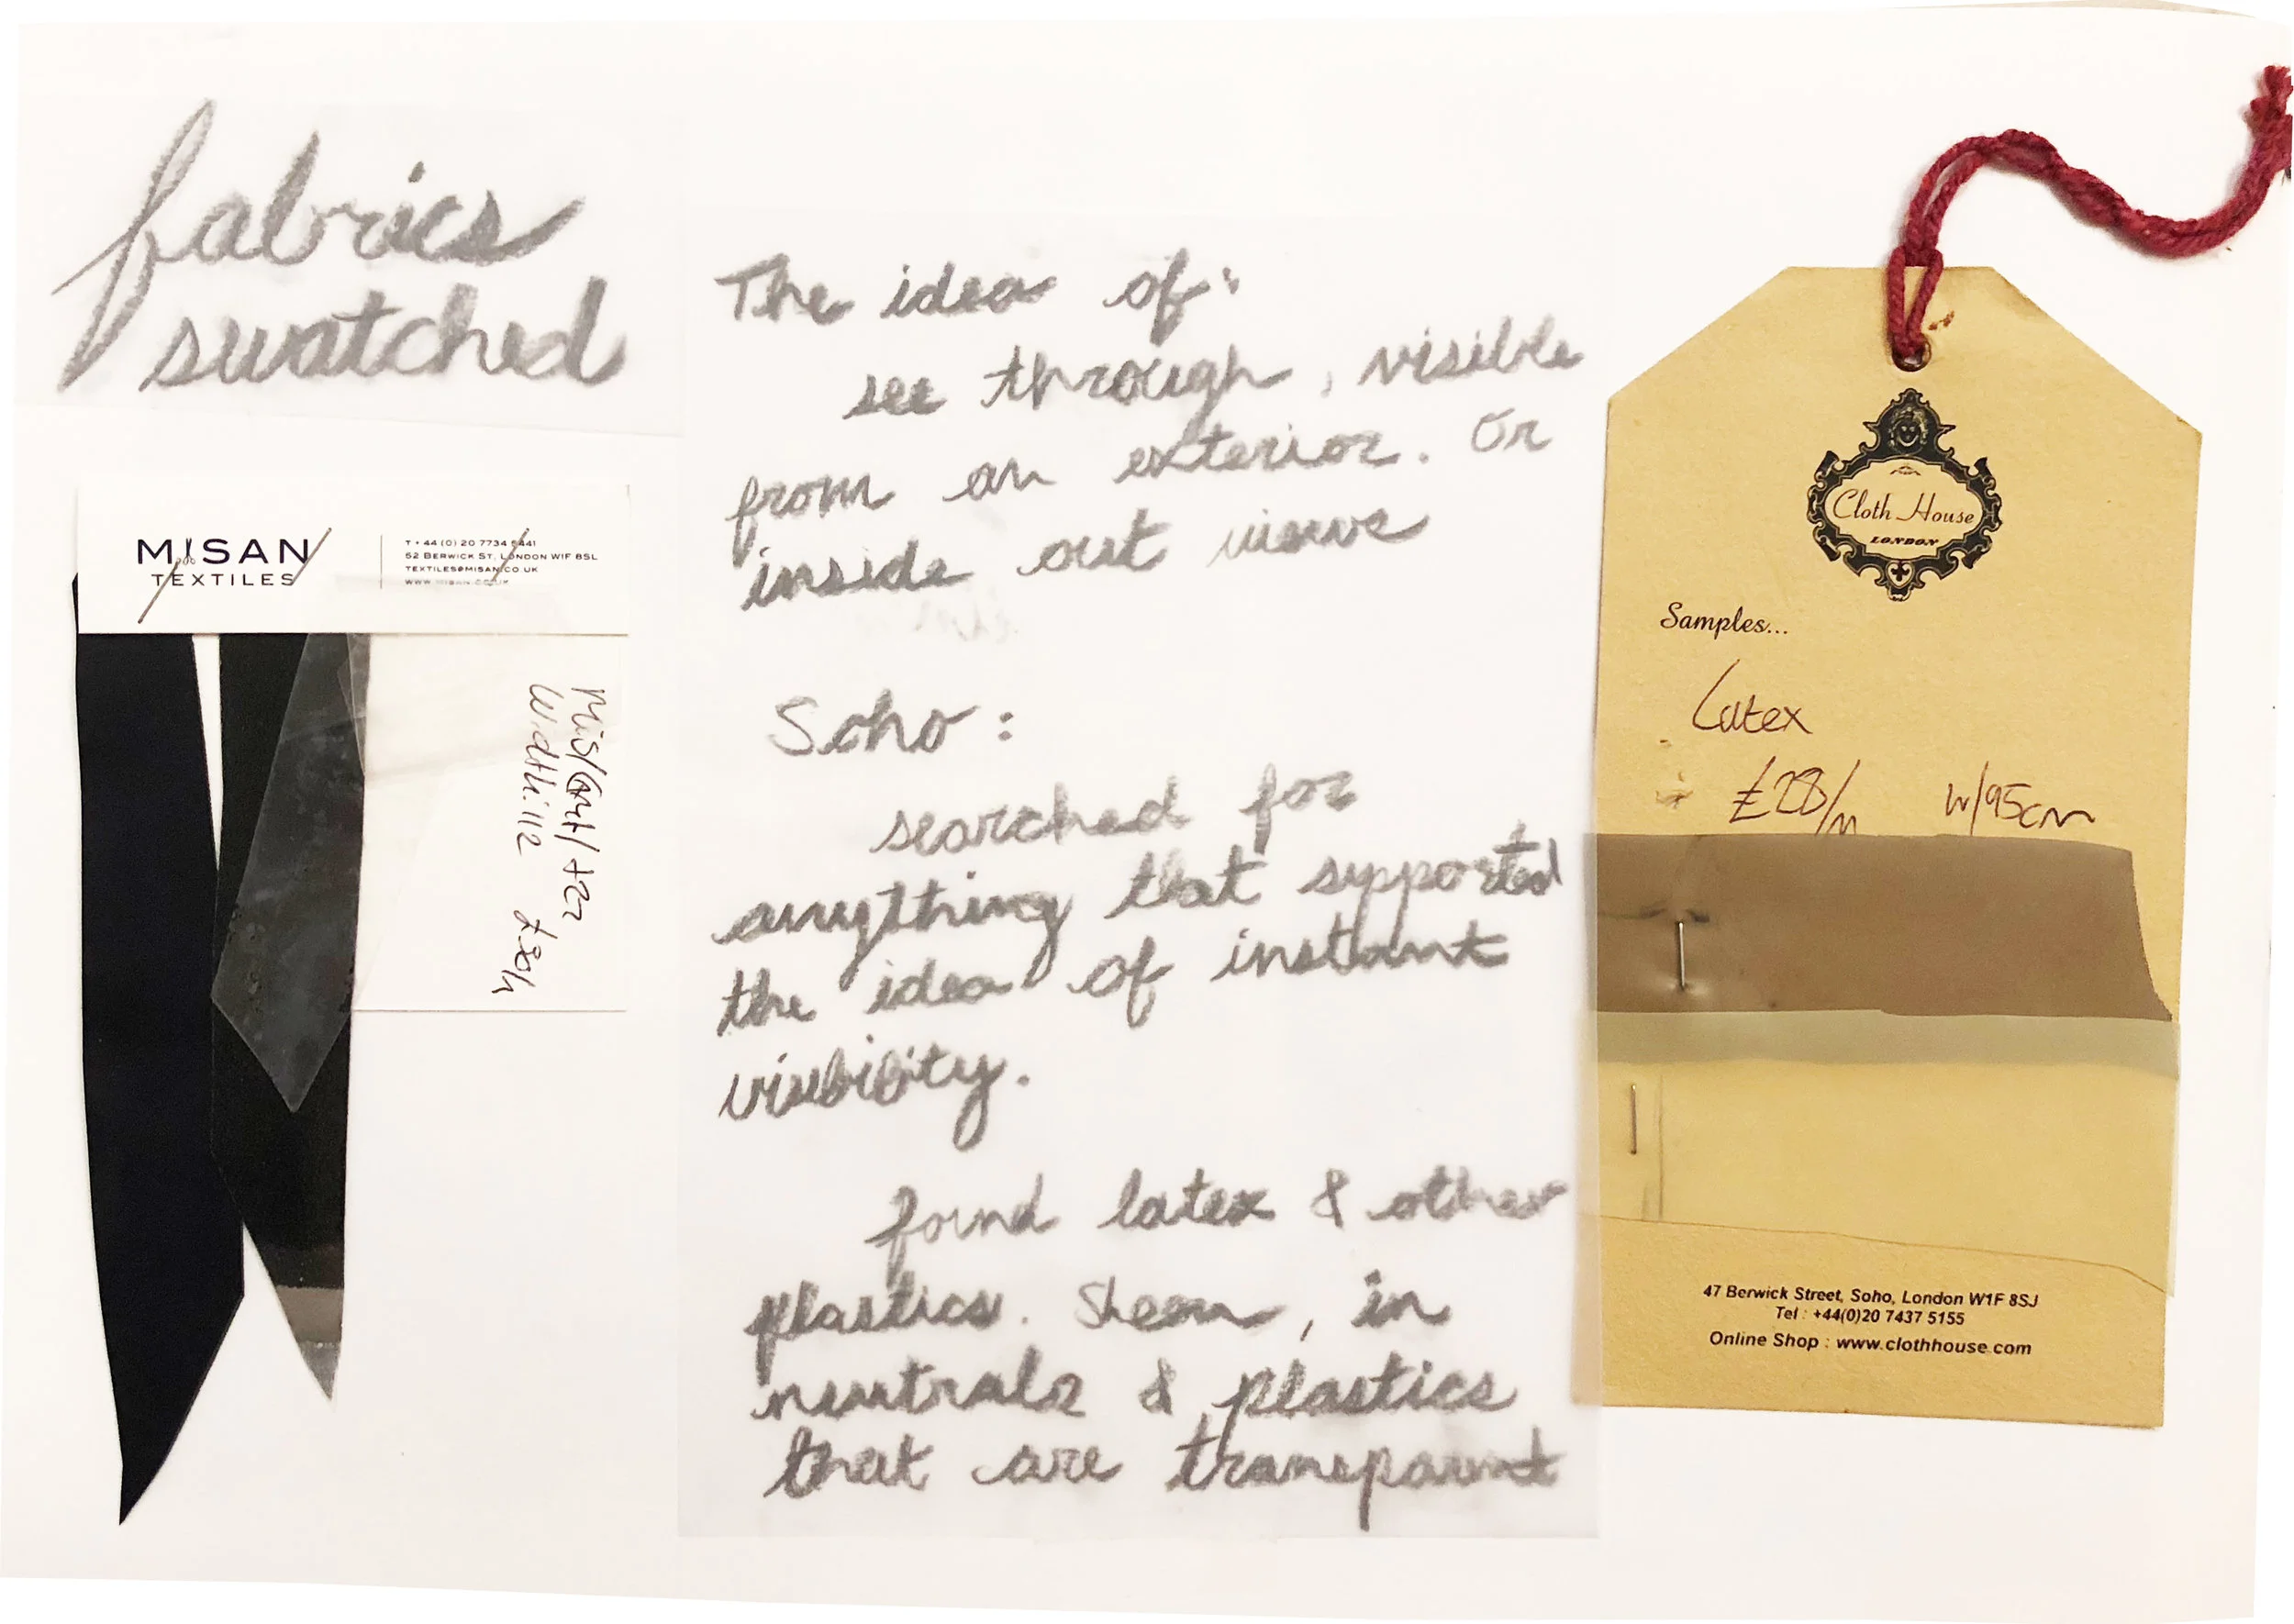 fabrics
swatched
MISAN
TEXTILES
T + 44 (0) 20 7734 5441
52 BERWICK ST. LONDON W1F 8SL
TEXTILES@MISAN.CO.UK
WWW.MISAN.CO.UK
Width: 112
The idea of:
see through, visible
from an exterior. Or
inside out views
Soho:
searched for
anything that supported
the idea of instant
visibility.
found latex & other
plastics. Sheer, in
neutrals & plastics
that are transparent
Cloth House
LONDON
Samples...
Latex
£28/m w/95cm
47 Berwick Street, Soho, London W1F 8SJ
Tel : +44(0)20 7437 5155
Online Shop : www.clothhouse.com